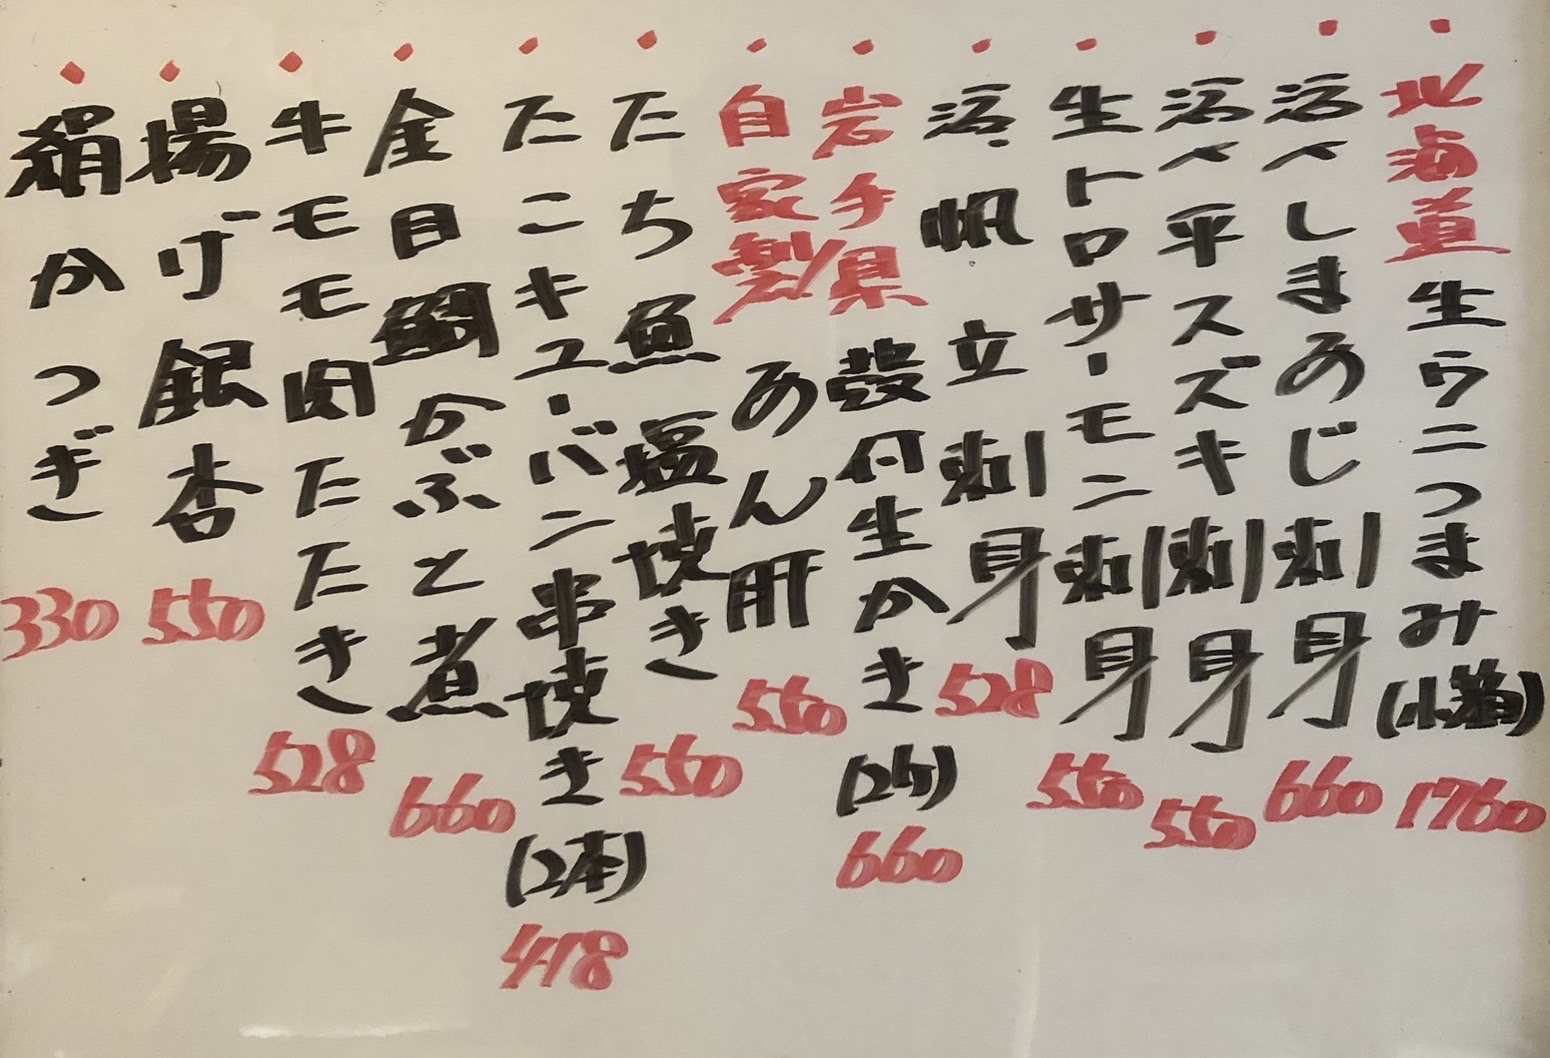 北海道生ウニつまみ(小箱) 1760
活〆しまあじ刺身 660
活〆平スズキ刺身 550
生トロサーモン刺身 550
活帆立刺身 528
岩手県殻付生かき(2ケ) 660
自家製あん肝 550
たち魚塩焼き 550
たこキューバン串焼き(2本) 418
金目鯛かぶと煮 660
牛モモ肉たたき 528
揚げ銀杏 550
絹かつぎ 330